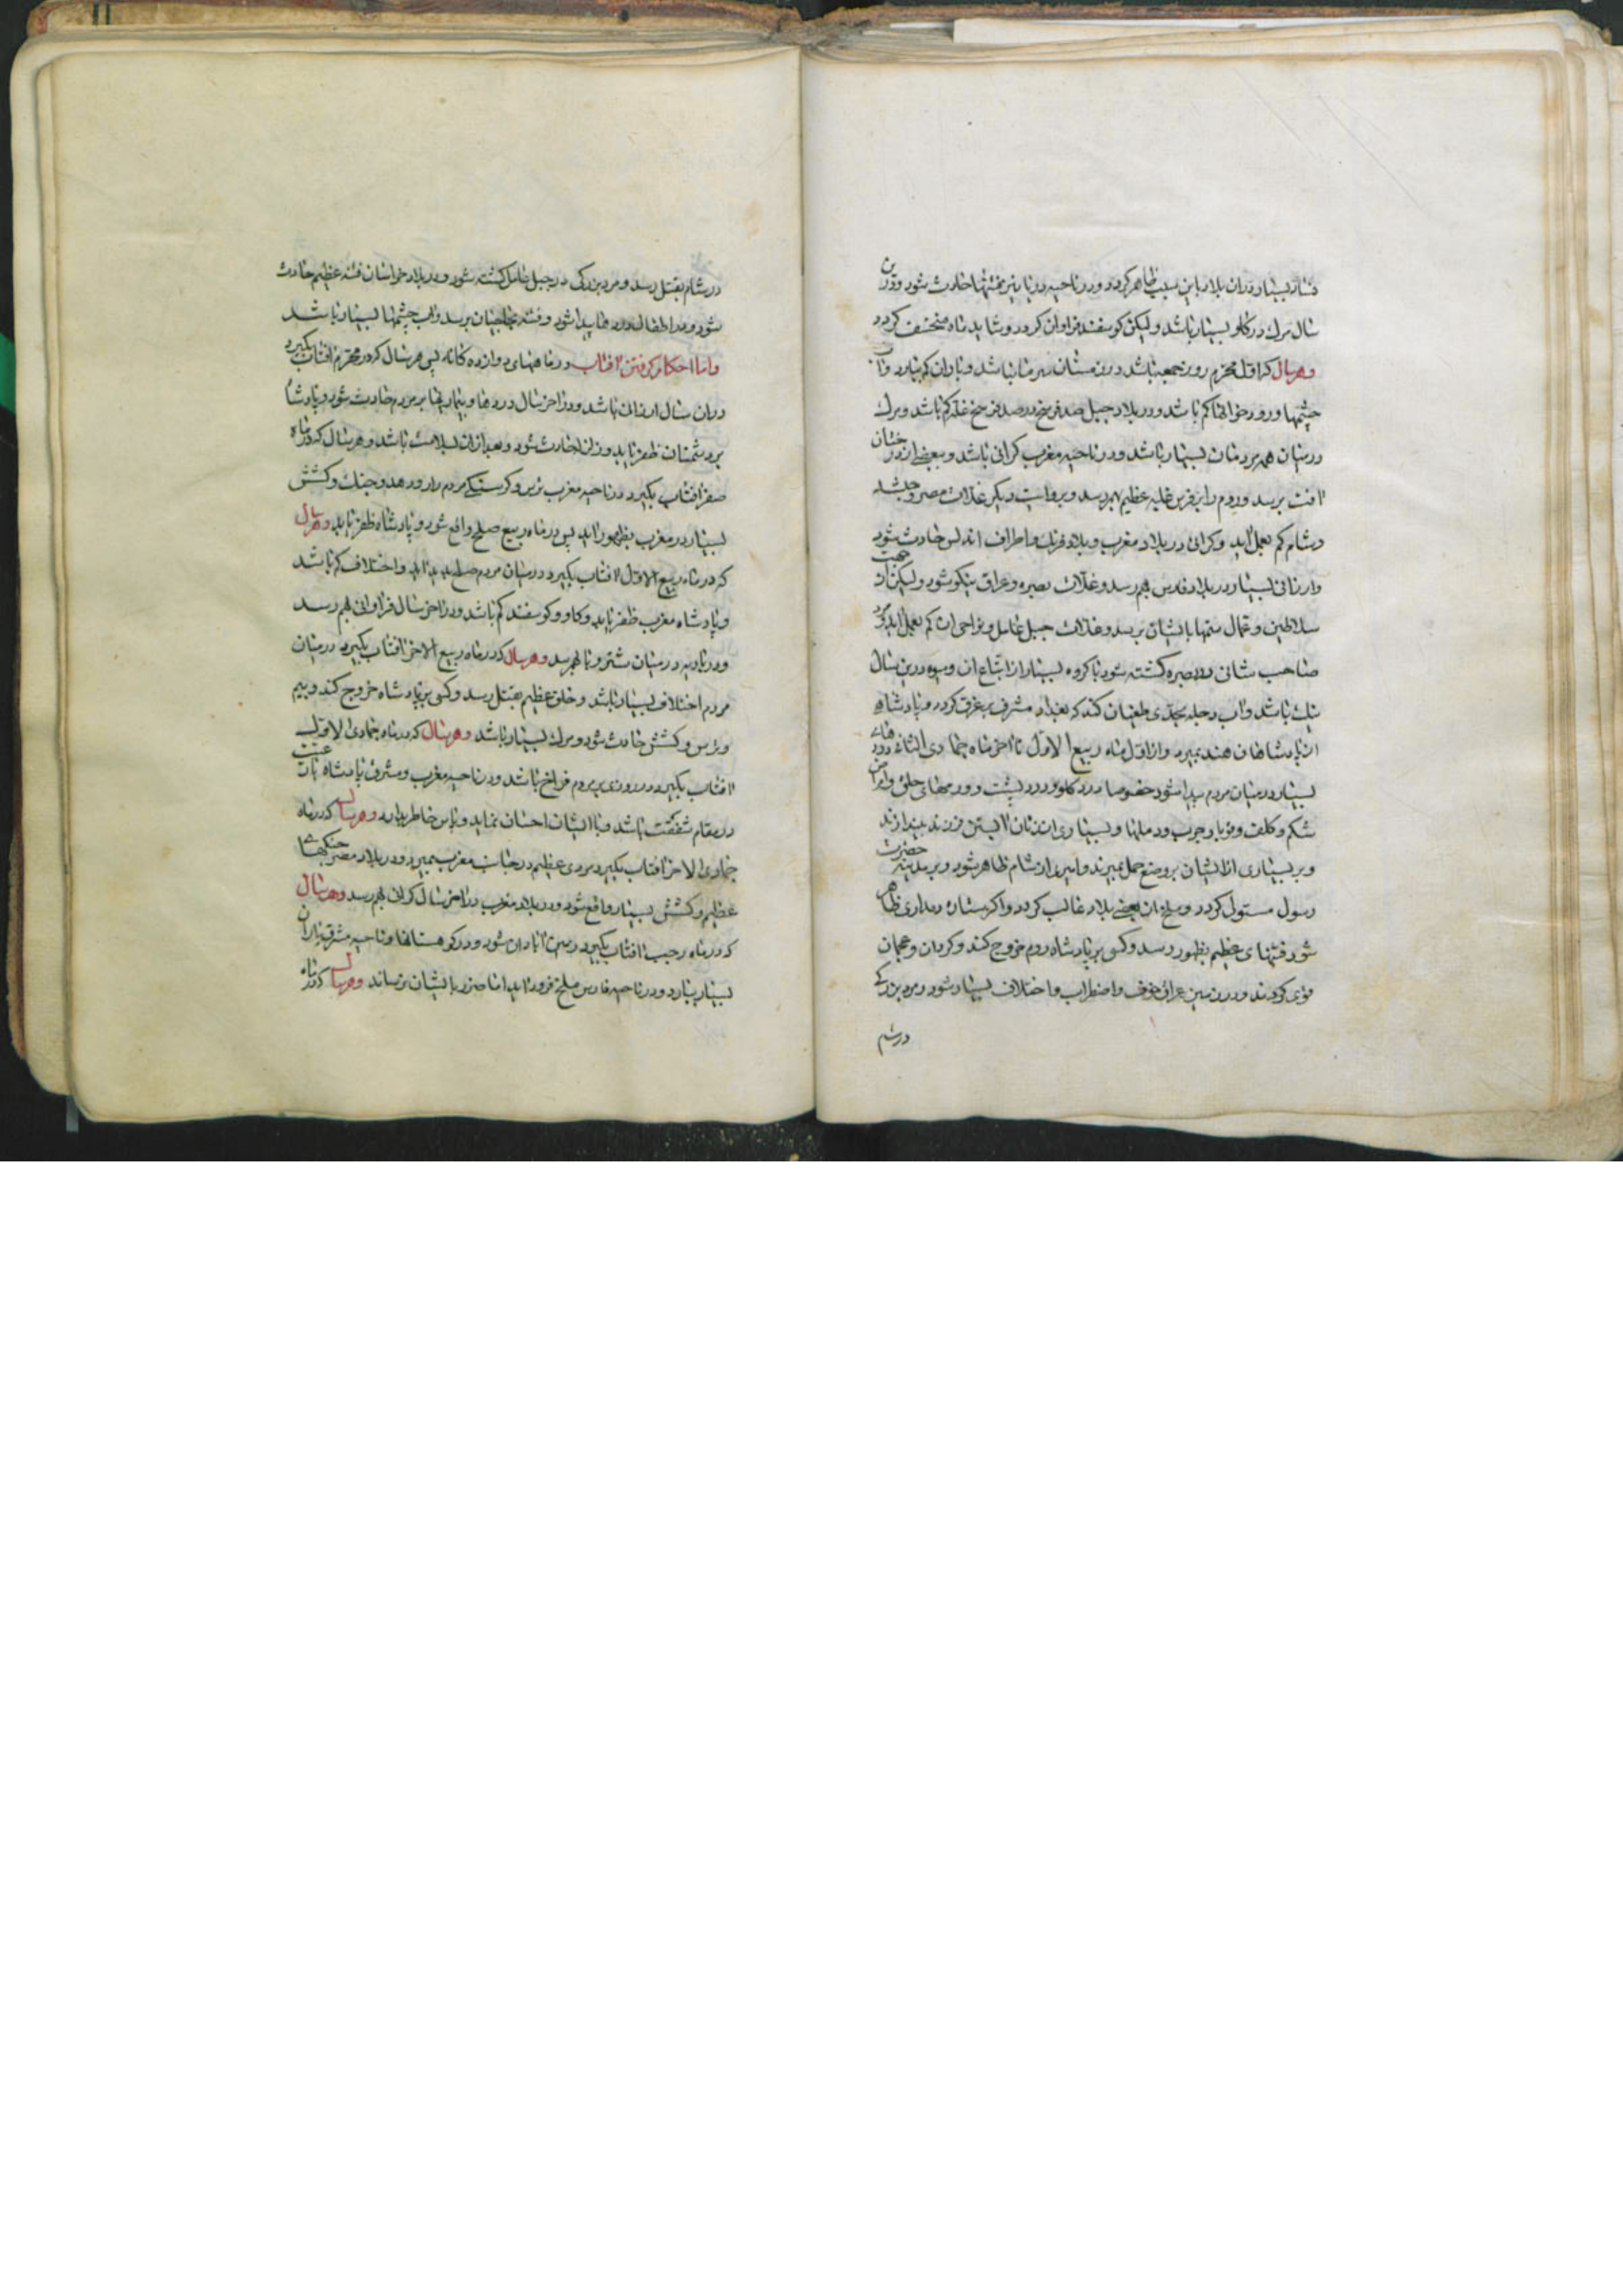 فساد بسیار در ان بلاد باین سبب ظاهر گردد و در ناحیه دزنا نیز فتنها حادث شود و درین
سال مرك در كاو بسیار باشد ولیكن كوسفند فراوان كردد و شاید ماه منخسف كردد
وهر سال كه اول محرم روز جمعه باشد در زمستان سرما نباشد و باران كم ببارد و اب
چشمها و رودخوانها كم باشد و در بلاد جبل صد فرسخ در صد فرسخ غله كم باشد و مرك
در میان همه مردمان بسیار باشد و در ناحیه مغرب كرانی باشد و ببعضی از درختان
افت برسد و روم را بر فرس غلبه عظیم بهم رسد و بروایت دیكر غلات مصر و حبشه
و شام كم بعمل اید و كرانی در بلاد مغرب و بلاد فرنك و اطراف اندلس حادث شود
و ارزانی بسیار در بلاد فارس بهم رسد و غلات بصره و عراق نیكو شود ولیكن از جهت
سلاطین و عمال ستمها بایشان برسد و غلات جبل عامل و نواحی ان كم بعمل اید و مرد
صاحب شانی در بصره كشته شود با كروه بسیار از اتباع ان و میوه درین سال
نیك باشد و اب دجله بحدی طغیان كند كه بغداد مشرف بر غرق كردد و پادشاه
از پادشاهان هند بمیرد و از اول ماه ربیع الاول تا اخر ماه جمادی الثانی دردهای
بسیار در میان مردم پیدا شود خصوصا درد كلو و درد پشت و ورمهای حلق و امراض
شكم و كلف و قوبا و جرب و دملها و بسیاری از زنان ابستن فرزند بیندازند
و بر بسیاری از ایشان بر وضع حمل بمیرند و امیری از شام ظاهر شود و بر مدینه حضرت
رسول مستولی كردد و ملخ ان بعضی بلاد غالب كردد و اكر ستاره دمداری ظاهر
شود فتنهای عظیم بظهور رسد و كسی بر پادشاه روم خروج كند و كردان و عجمان
قوی كردند و در زمین عراق خوف و اضطراب و اختلاف بسیار شود و مرد بزركی
در شام
در شام بقتل رسد و مرد بزركی در جبل عامل كشته شود و در بلاد خراسان فتنه عظیم حادث
شود و در اطفال درد ها پیدا شود و فتنه بحاجیان برسد و اب چشمها بسیار باشد
و اما احكام كرفتن افتاب در ماههای دوازده كانه پس هر سال كه در محرم افتاب بكیرد
در ان سال ارزانی باشد و در اخر سال دردها و بیماریها بر مردم حادث شود و پادشاه
بر دشمنان ظفر یابد و زلزله حادث شود و بعد از ان سلامت باشد و هر سال كه در ماه
صفر افتاب بكیرد در ناحیه مغرب ترس و كرسنكی مردم را رو دهد و جنك و كشش
بسیار در مغرب بظهور اید پس در ماه ربیع صلح واقع شود و پادشاه ظفر یابد وهر سال
كه در ماه ربیع الاول افتاب بكیرد در میان مردم صلح پدید اید و اختلاف كم باشد
و پادشاه مغرب ظفر یابد و كاو و كوسفند كم باشد و در اخر سال فراوانی بهم رسد
و در بادیه در میان شتر وبا بهم رسد وهر سال كه در ماه ربیع الاخر افتاب بكیرد در میان
مردم اختلاف بسیار باشد و خلق عظیم بقتل رسد و كسی بر پادشاه خروج كند و بیم
و ترس و كشش حادث شود و مرك بسیار باشد وهر سال كه در ماه جمادی الاول
افتاب بكیرد در روزی بر مردم فراخ باشد و در ناحیه مغرب و مشرق پادشاه با رعیت
در مقام شفقت باشد و با ایشان احسان نماید و پاس خاطر بدارد وهر سال كه در ماه
جمادی الاخر افتاب بكیرد مردی عظیم در جانب مغرب بمیرد و در بلاد مصر جنكهای
عظیم و كشش بسیار واقع شود و در بلاد مغرب در اخر سال كرانی بهم رسد وهر سال
كه در ماه رجب افتاب بكیرد زمین ابادان شود و در كوهستانها و ناحیه مشرق باران
بسیار ببارد و در ناحیه فارس ملخ فرود اید اما ضرر بایشان نرساند وهر سال كه در ماه